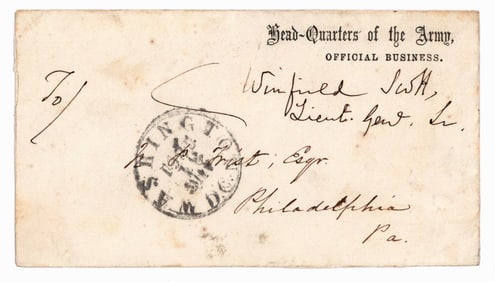 Head-Quarters of the Army,
OFFICIAL BUSINESS.
Winfield Scott,
Lieut. Genl.
To/
WASHINGTON D.C.
Frost, Esqr.
Philadelphia
Pa.